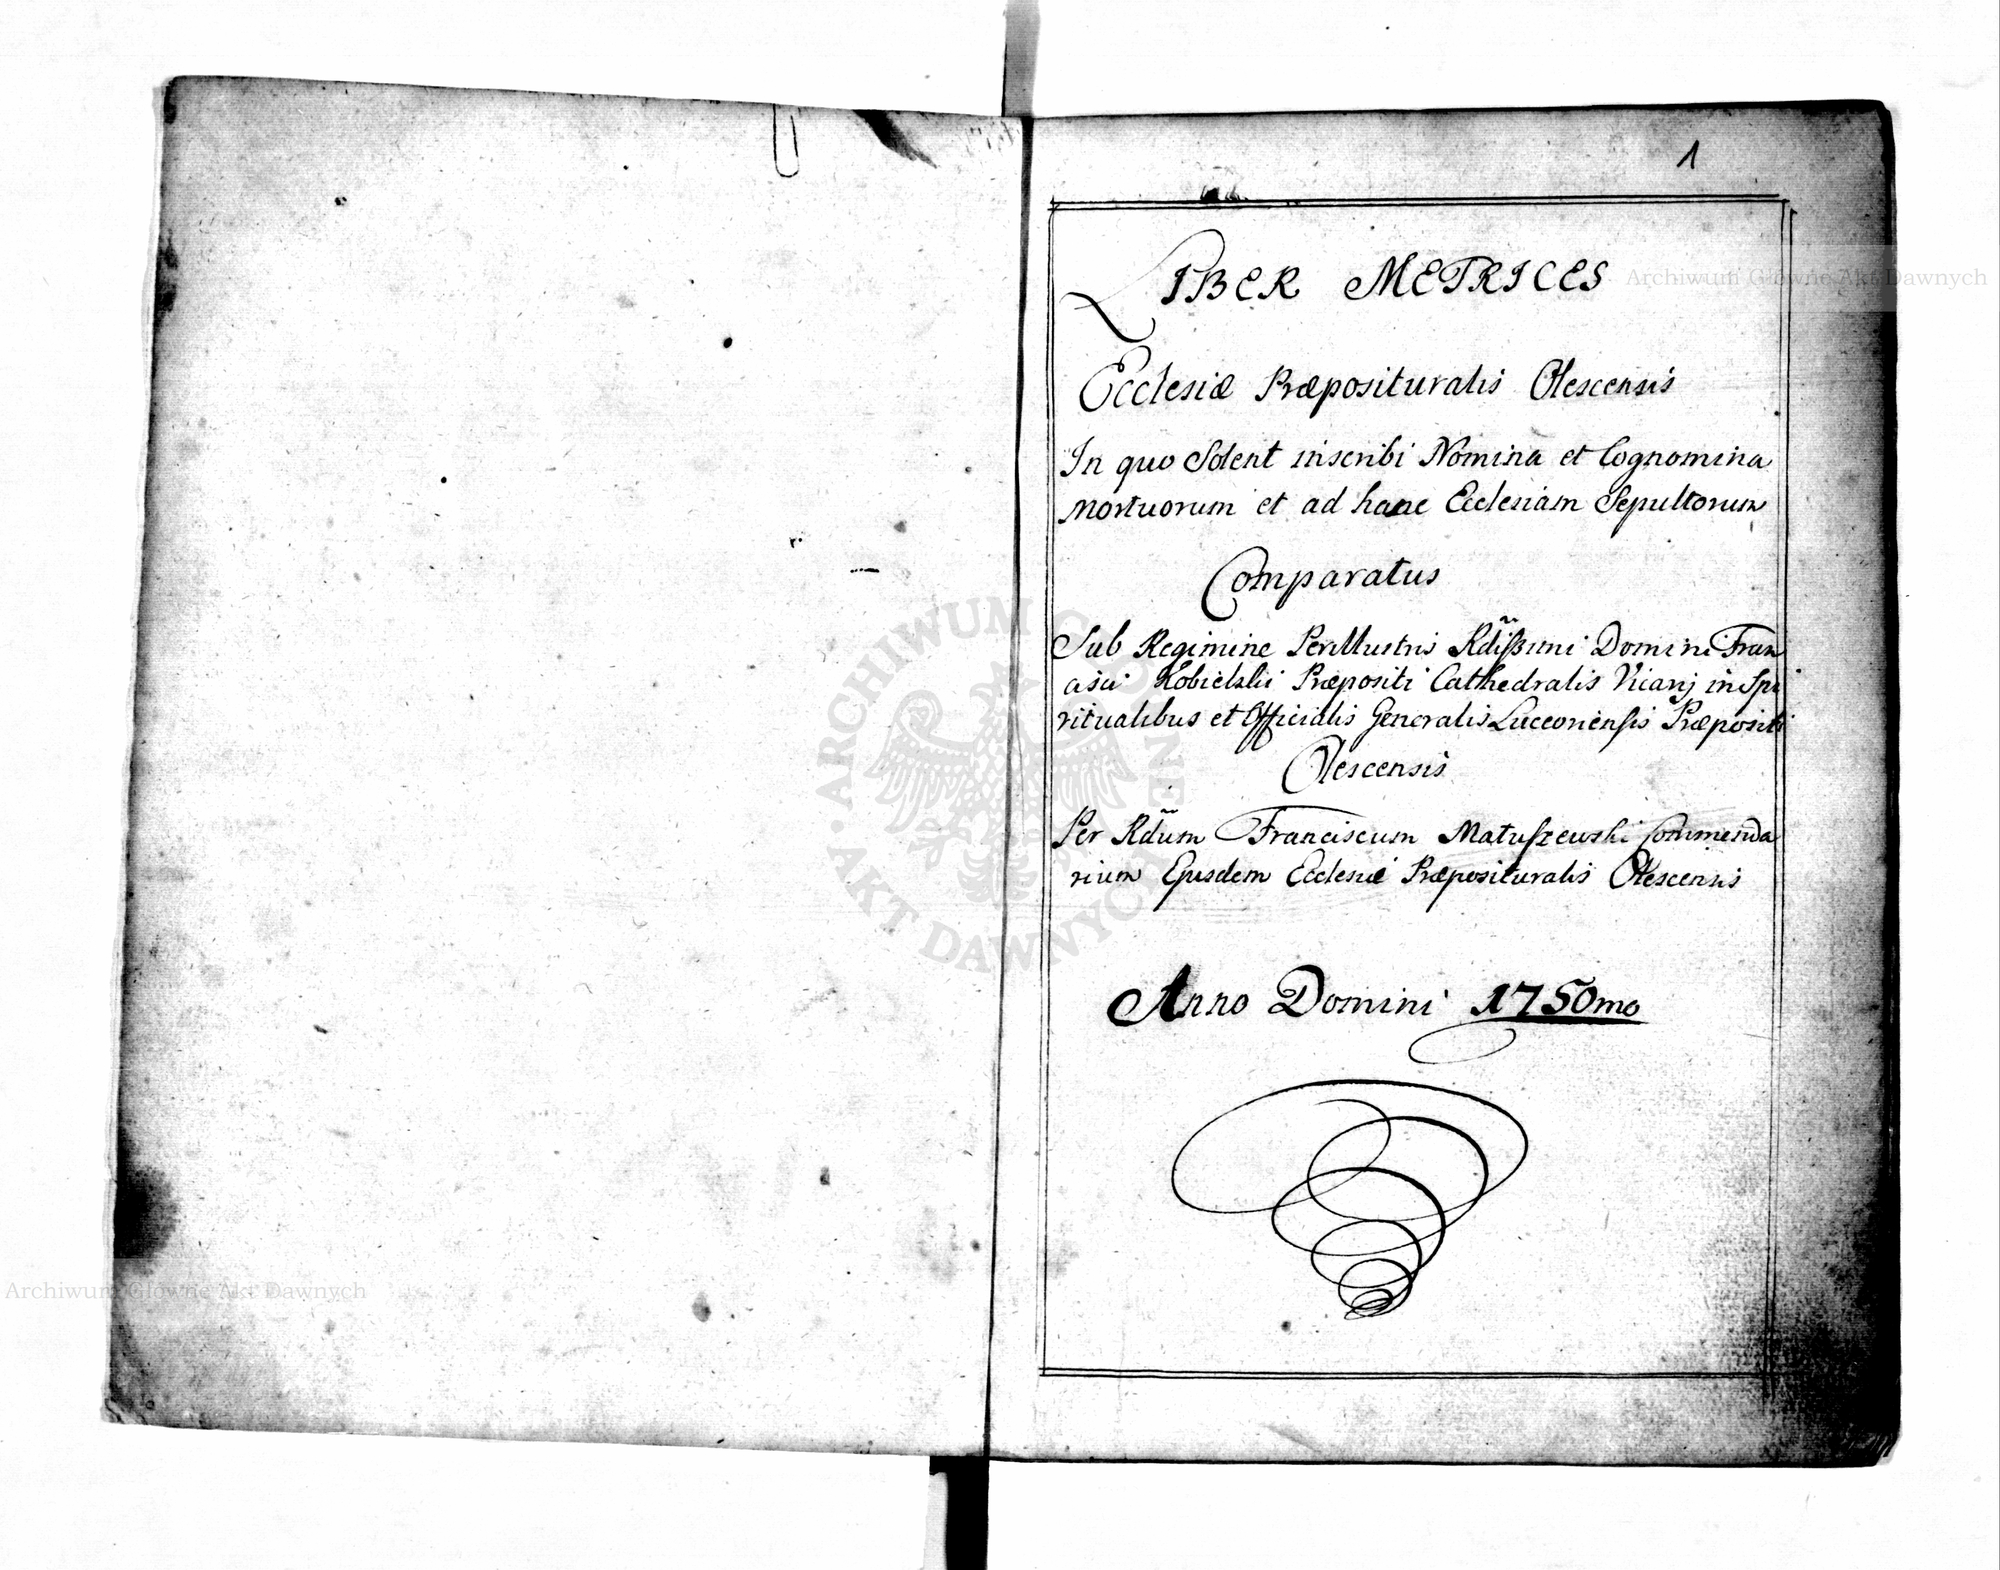 1
LIBER METRICES
Ecclesiæ Præposituralis Olescensis
In quo Solent inscribi Nomina et Cognomina
Mortuorum et ad hanc Ecclesiam Sepultorum
Comparatus
Sub Regimine PerIllustris Rdissimi Domini Fran
cisci Kobielskii Præpositi Cathedralis Vicarij in Spi
ritualibus et Officialis Generalis Luceoriensis Præpositi
Olescensis
Per Rdum Franciscum Matuszewski Commenda
rium Ejusdem Ecclesiæ Præposituralis Olescensis
Anno Domini 1750mo
Archiwum Główne Akt Dawnych
ARCHIWUM GŁÓWNE AKT DAWNYCH
Archiwum Główne Akt Dawnych